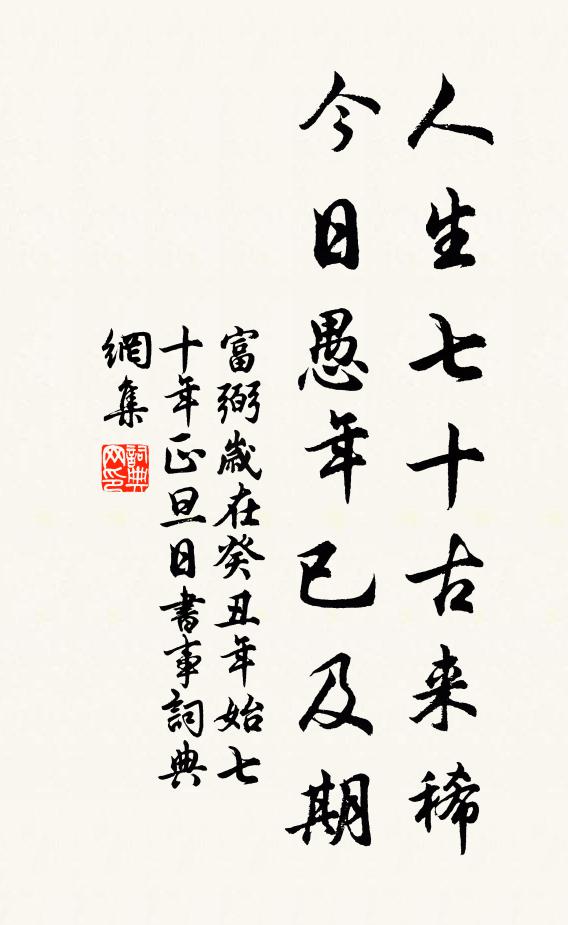 人生七十古来稀
今日愚年已及期
富弼歳在癸丑年始七
十年正旦日書事詞典
網集
詞典
网印